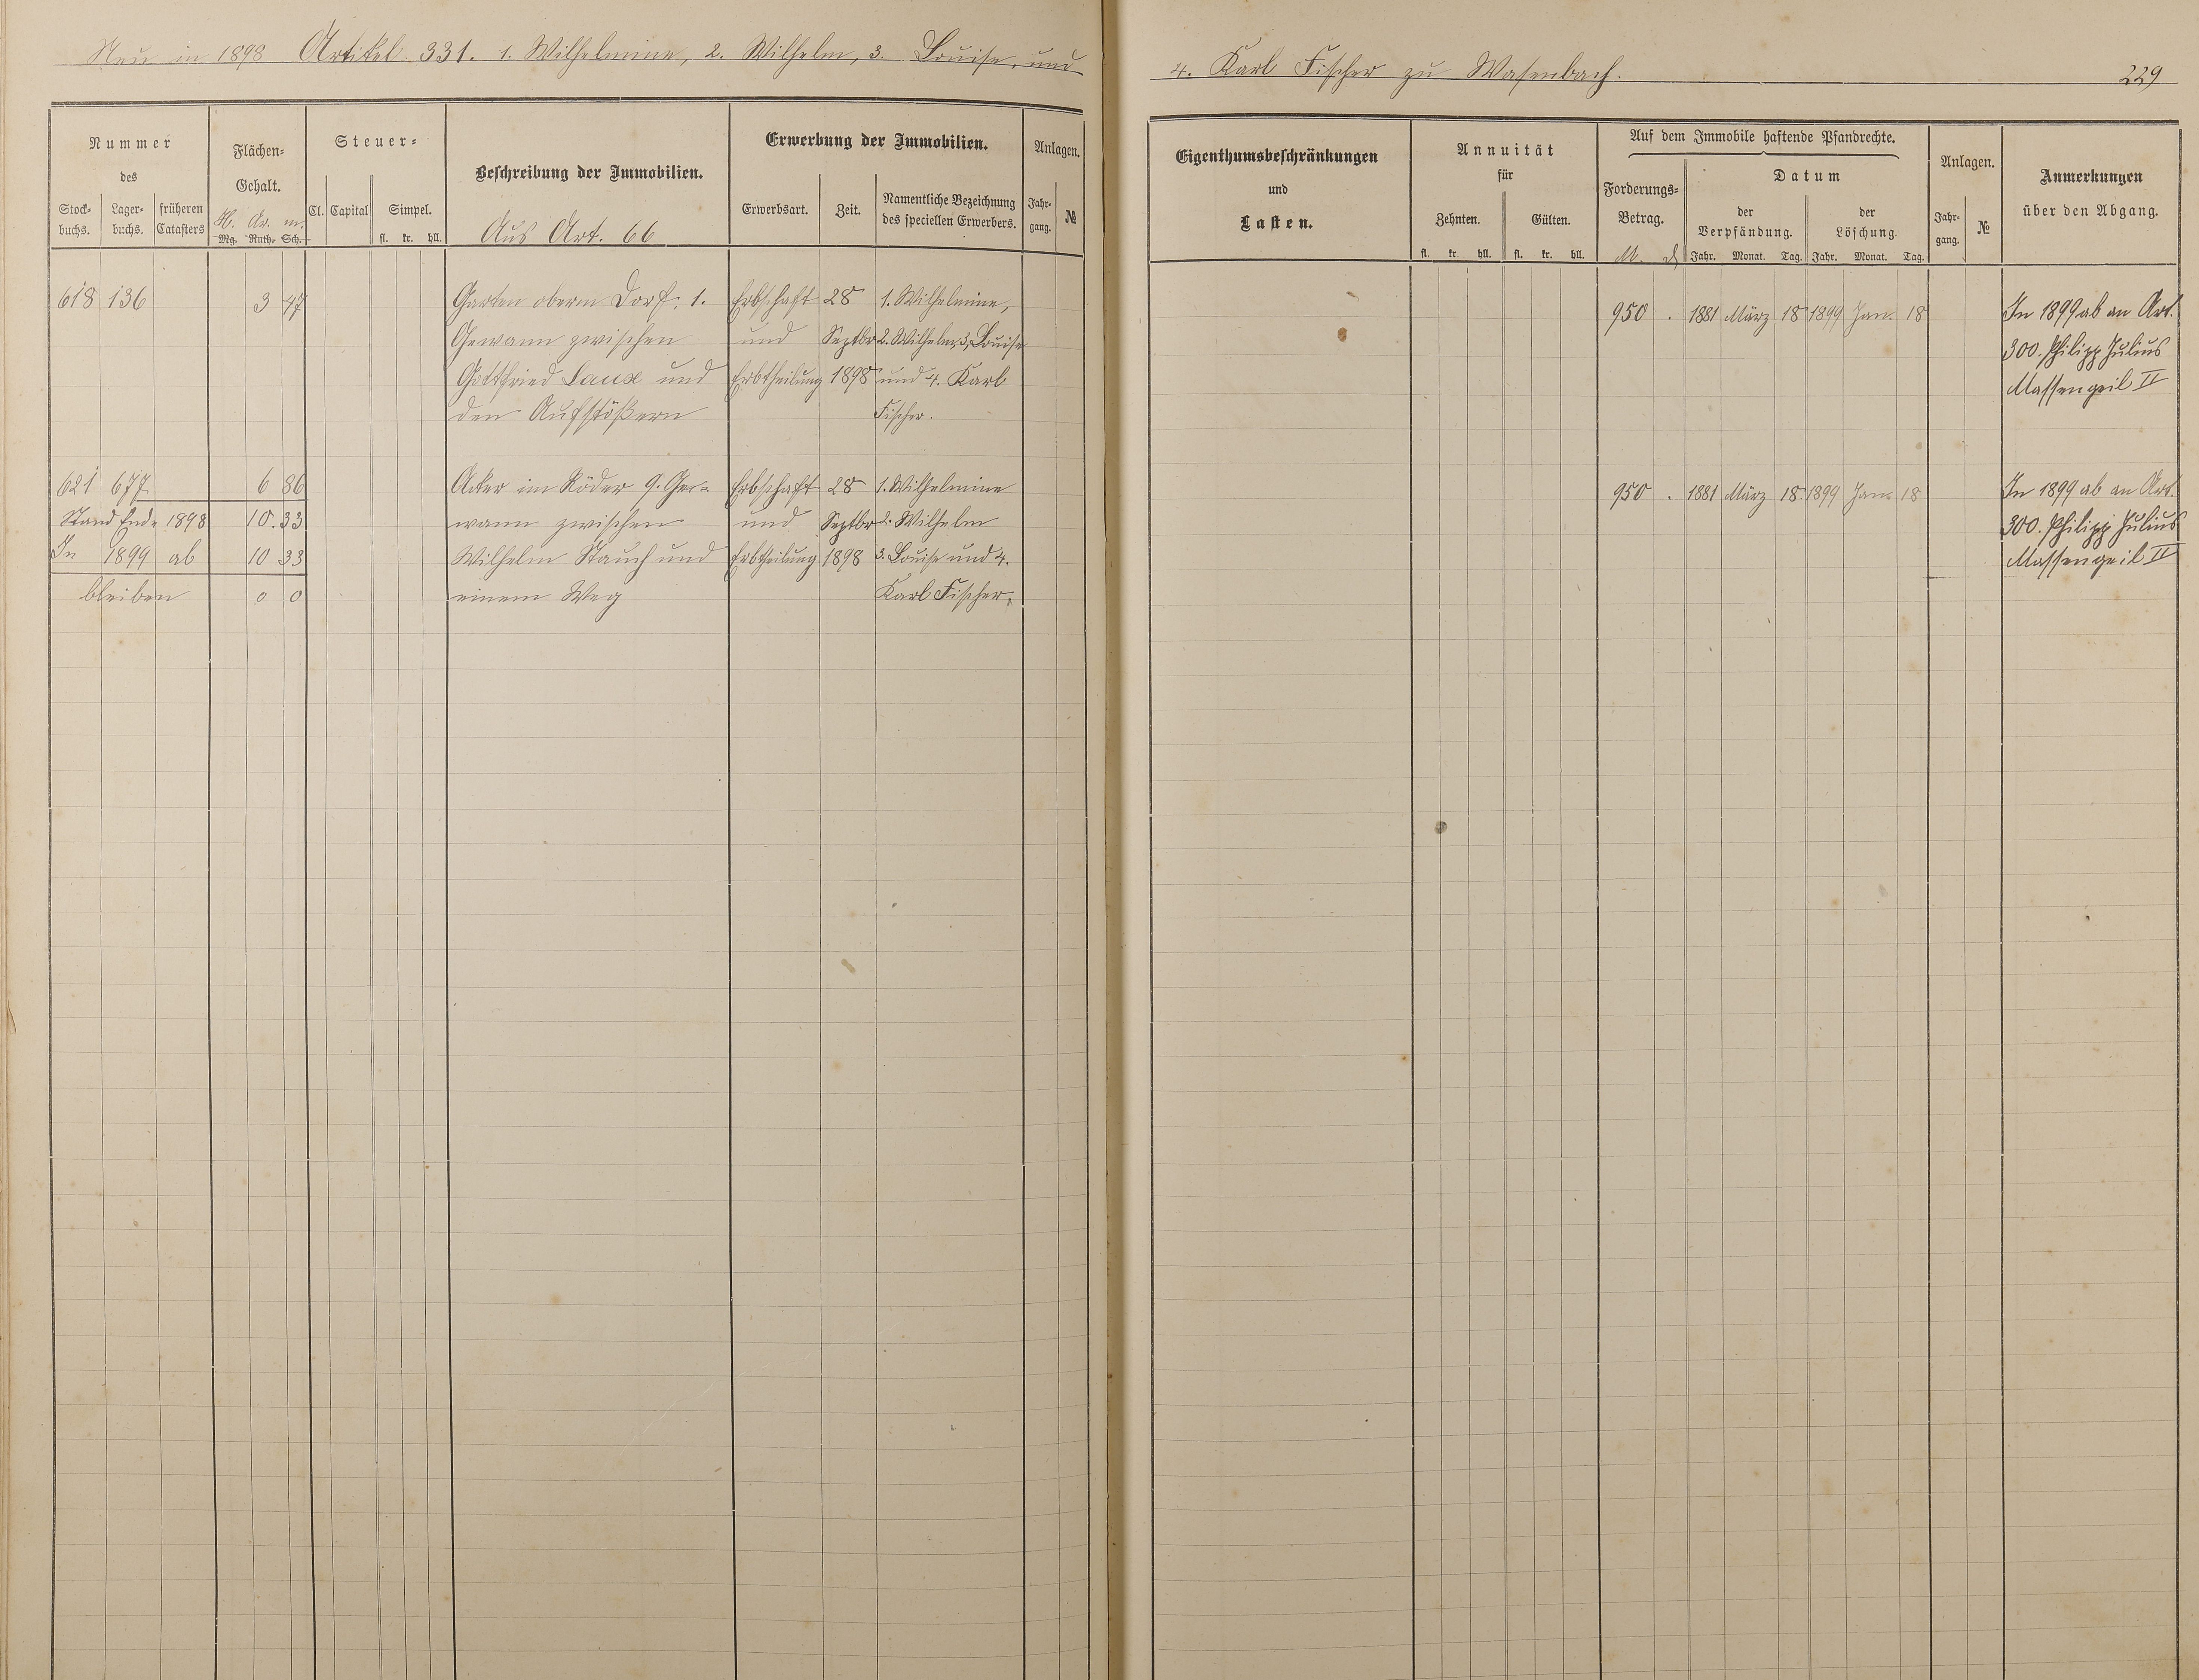 Neu in 1898 Artikel 331. 1. Wilhelmine, 2. Wilhelm, 3. Louise, und
4. Karl Fischer zu Wasenbach.
229
Nummer
des
Stock-
buchs.
Lager-
buchs.
früheren
Catasters
Flächen-
Gehalt.
H. Ar. m.
Mg. Ruth. Sch.
Steuer-
Cl. Capital Simpel.
fl. kr. hll.
Beschreibung der Immobilien.
Aus Art. 66
Erwerbung der Immobilien.
Erwerbsart. Zeit.
Namentliche Bezeichnung
des speciellen Erwerbers.
Anlagen.
Jahr-
gang.
№
Eigenthumsbeschränkungen
und
Lasten.
Annuität
für
Zehnten. Gülten.
fl. kr. hll. fl. kr. hll.
Auf dem Immobile haftende Pfandrechte.
Forderungs-
Betrag.
M. ₰
Datum
der
Verpfändung.
Jahr. Monat. Tag.
der
Löschung.
Jahr. Monat. Tag.
Anlagen.
Jahr-
gang.
№
Anmerkungen
über den Abgang.
618 136 3 47 Garten oberm Dorf, 1. Erbschaft 28 1. Wilhelmine,
Gewann zwischen und Septbr 2. Wilhelm, 3. Louise
Gottfried Laux und Erbtheilung 1898 und 4. Karl
den Aufstößern Fischer.
950 . 1881 März 18 1899 Jan. 18 In 1899 ab an Art.
300. Philipp Julius
Massengeil II
621 677 6 86 Acker im Röder 9. Ge-
wann zwischen
Wilhelm Stauch und
einem Weg
Erbschaft
und
Erbtheilung
28
Septbr
1898
1. Wilhelmine
2. Wilhelm
3. Louise und 4.
Karl Fischer.
Stand Ende 1898 10. 33
In 1899 ab 10 33
bleiben 0 0
950 . 1881 März 18 1899 Jan. 18 In 1899 ab an Art.
300. Philipp Julius
Massengeil II